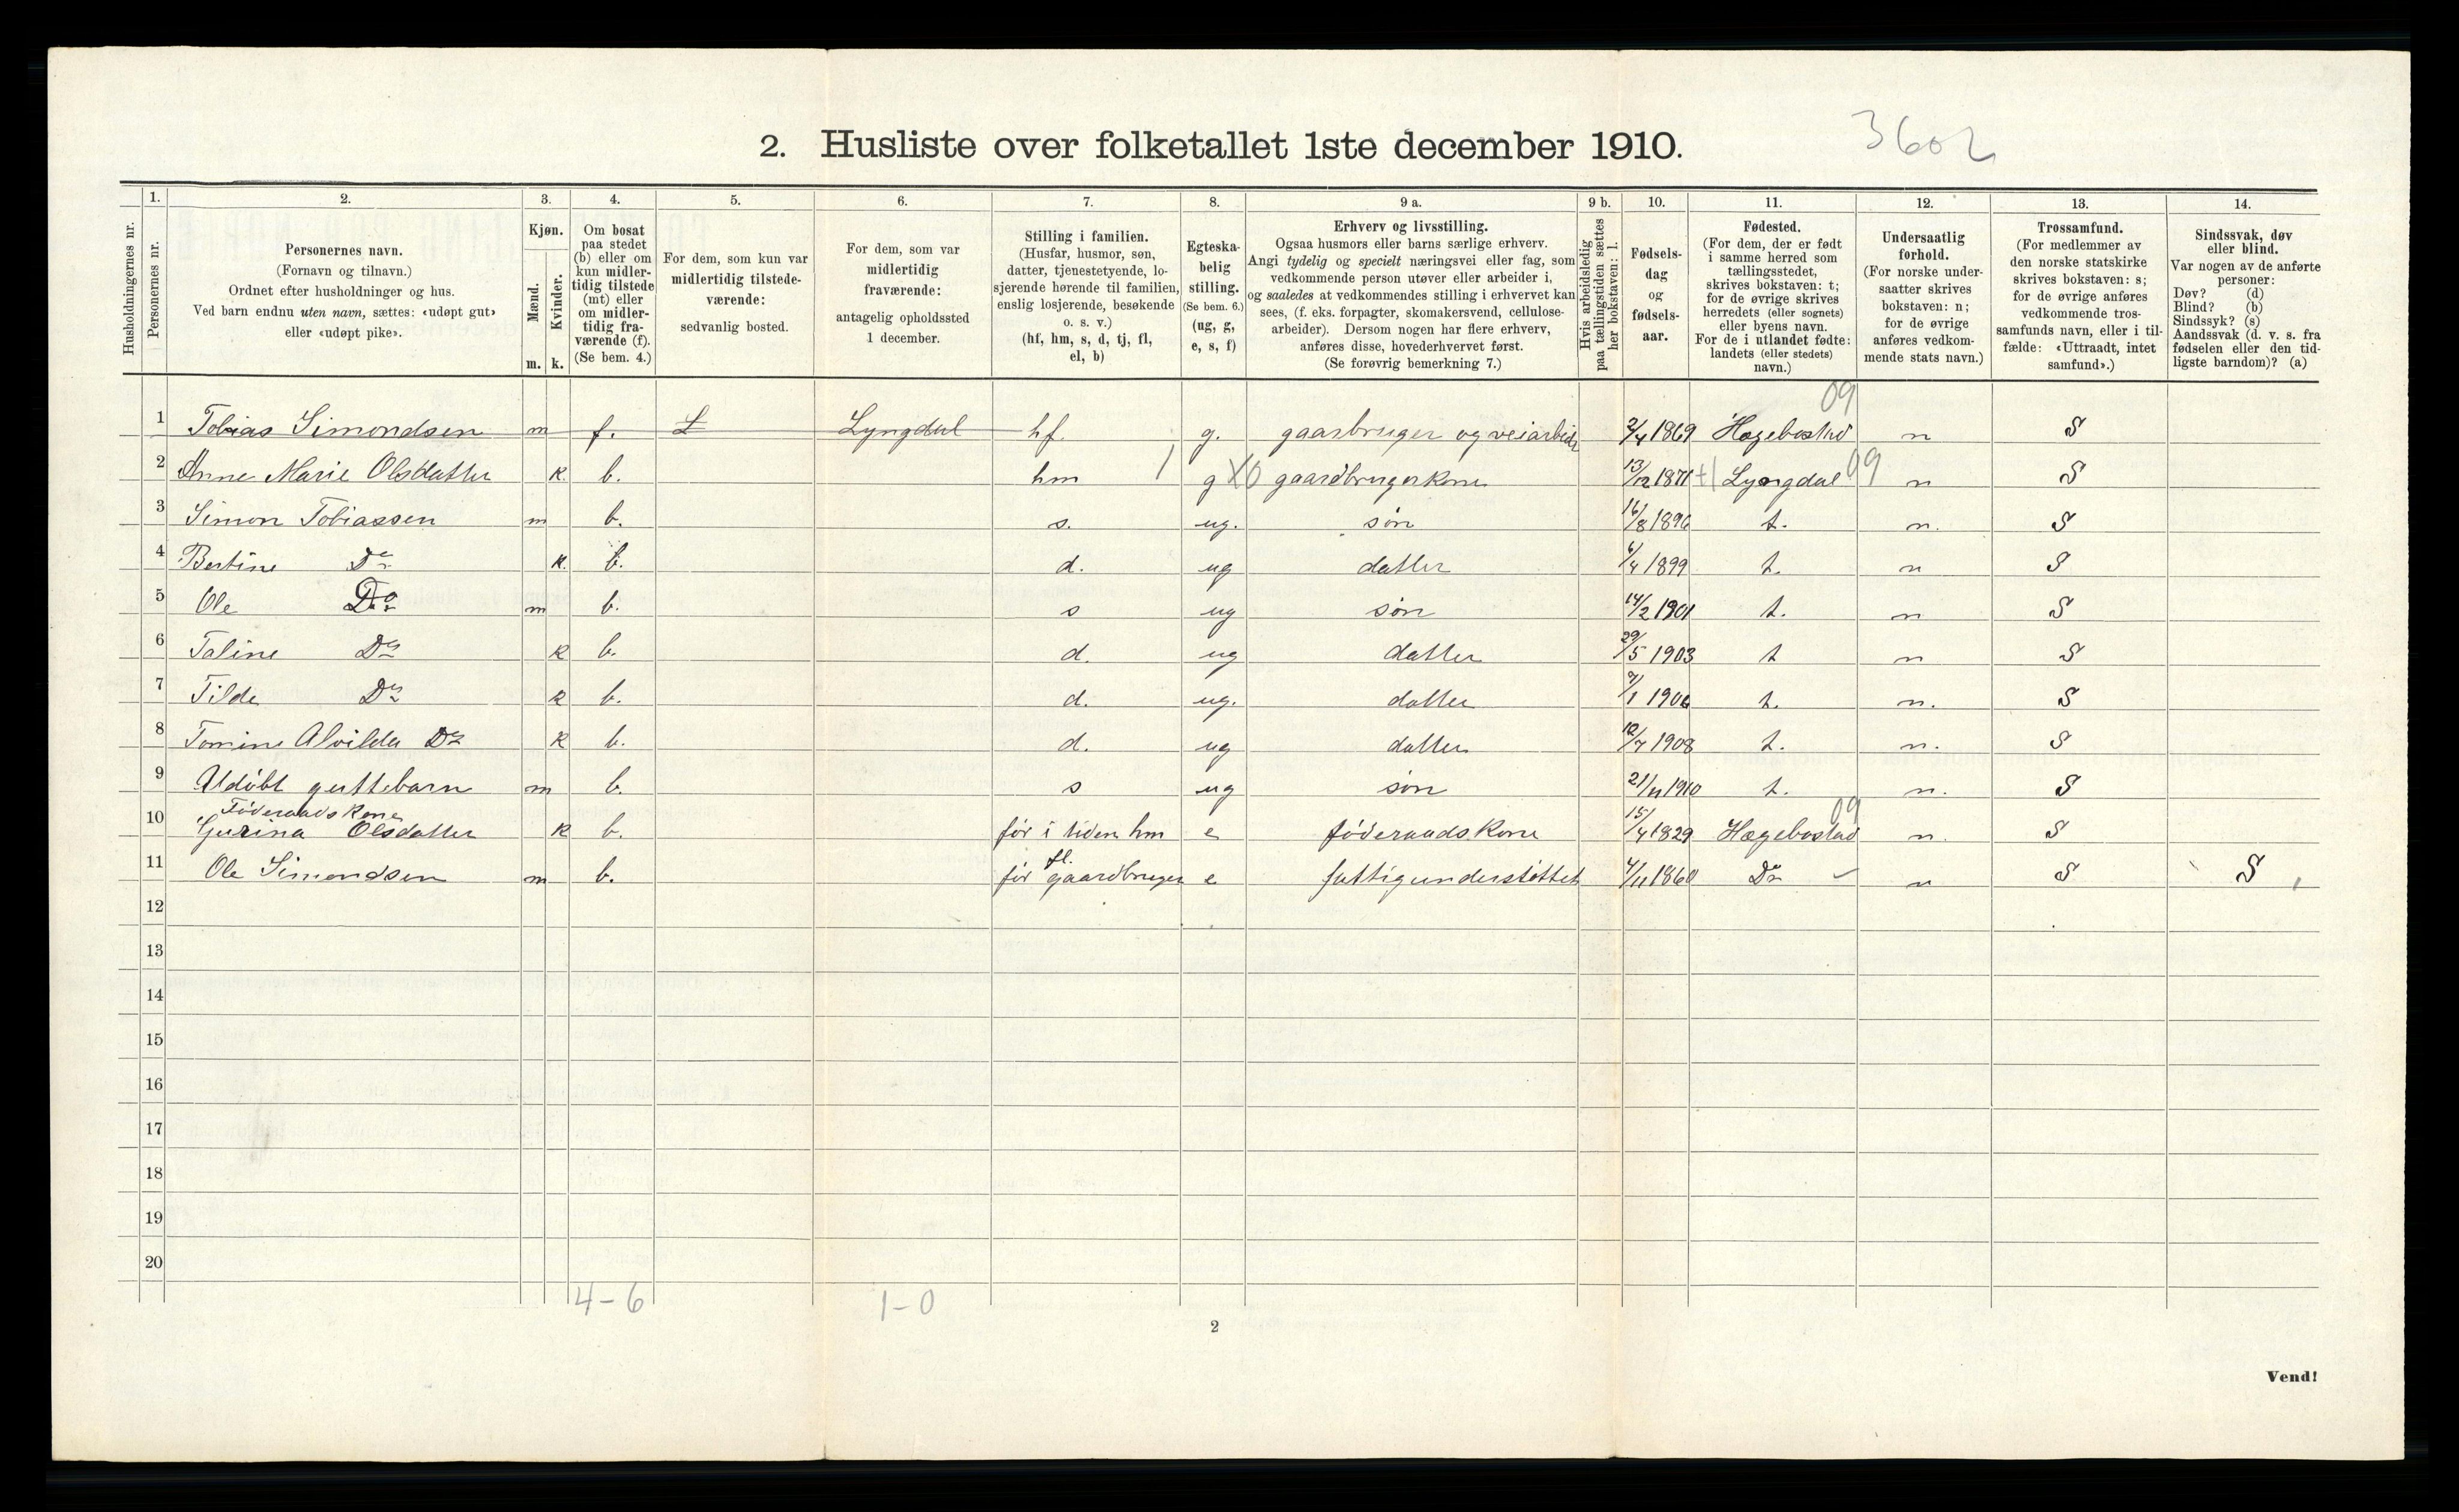 2. Husliste over folketallet 1ste december 1910.
3602
Husholdningernes nr.
1.
Personernes nr.
2.
Personernes navn.
(Fornavn og tilnavn.)
Ordnet efter husholdninger og hus.
Ved barn endnu uten navn, sættes: «udøpt gut»
eller «udøpt pike».
3.
Kjøn.
Mænd.
Kvinder.
m. k.
4.
Om bosat
paa stedet
(b) eller om
kun midler-
tidig tilstede
(mt) eller
om midler-
tidig fra-
værende (f).
(Se bem. 4.)
5.
For dem, som kun var
midlertidig tilstede-
værende:
sedvanlig bosted.
6.
For dem, som var
midlertidig
fraværende:
antagelig opholdssted
1 december.
7.
Stilling i familien.
(Husfar, husmor, søn,
datter, tjenestetyende, lo-
sjerende hørende til familien,
enslig losjerende, besøkende
o. s. v.)
(hf, hm, s, d, tj, fl,
el, b)
8.
Egteska-
belig
stilling.
(Se bem. 6.)
(ug, g,
e, s, f)
9 a.
Erhverv og livsstilling.
Ogsaa husmors eller barns særlige erhverv.
Angi tydelig og specielt næringsvei eller fag, som
vedkommende person utøver eller arbeider i,
og saaledes at vedkommendes stilling i erhvervet kan
sees, (f. eks. forpagter, skomakersvend, cellulose-
arbeider). Dersom nogen har flere erhverv,
anføres disse, hovederhvervet først.
(Se forøvrig bemerkning 7.)
9 b.
Hvis arbeidsledig
paa tællingstiden sættes
her bokstaven: l.
10.
Fødsels-
dag
og
fødsels-
aar.
11.
Fødested.
(For dem, der er født
i samme herred som
tællingsstedet,
skrives bokstaven: t;
for de øvrige skrives
herredets (eller sognets)
eller byens navn.
For de i utlandet fødte:
landets (eller stedets)
navn.)
12.
Undersaatlig
forhold.
(For norske under-
saatter skrives
bokstaven: n;
for de øvrige
anføres vedkom-
mende stats navn.)
13.
Trossamfund.
(For medlemmer av
den norske statskirke
skrives bokstaven: s;
for de øvrige anføres
vedkommende tros-
samfunds navn, eller i til-
fælde: «Uttraadt, intet
samfund».)
14.
Sindssvak, døv
eller blind.
Var nogen av de anførte
personer:
Døv? (d)
Blind? (b)
Sindssyk? (s)
Aandssvak (d. v. s. fra
fødselen eller den tid-
ligste barndom)? (a)
09
1 Tobias Simondsen m f. L Lyngdal hf. g. gaarbruger og veiarbeider 2/4 1869 Hægebostad n S
2 Anne Marie Olsdatter k. b. hm 1 g X0 gaardbrugerkone 13/12 1871 +1 Lyngdal 09 n S
3 Simon Tobiassen m b. s. ug. søn 16/8 1896 t. n. S
4 Bertine Do k. b. d. ug datter 6/4 1899 t. n S
5 Ole Do m b. s ug søn 14/2 1901 t. n S
6 Taline Do k b. d. ug datter 29/5 1903 t n S
7 Tilda Do k b. d. ug. datter 9/1 1906 t. n. S
8 Tomine Alvilda Do k b. d. ug datter 12/7 1908 t. n. S
9 Udøbt guttebarn m b. s ug søn 21/11 1910 t. n. S
Føderaadskone 09
10 Gurina Olsdatter k b. før i tiden hm e føderaadskone 15/4 1829 Hægebostad n. S
fl.
11 Ole Simondsen m b. før gaardbruger e fattigunderstøttet 4/11 1860 Do n S S
12
13
14
15
16
17
18
19
20
4-6 1-0
2
Vend!